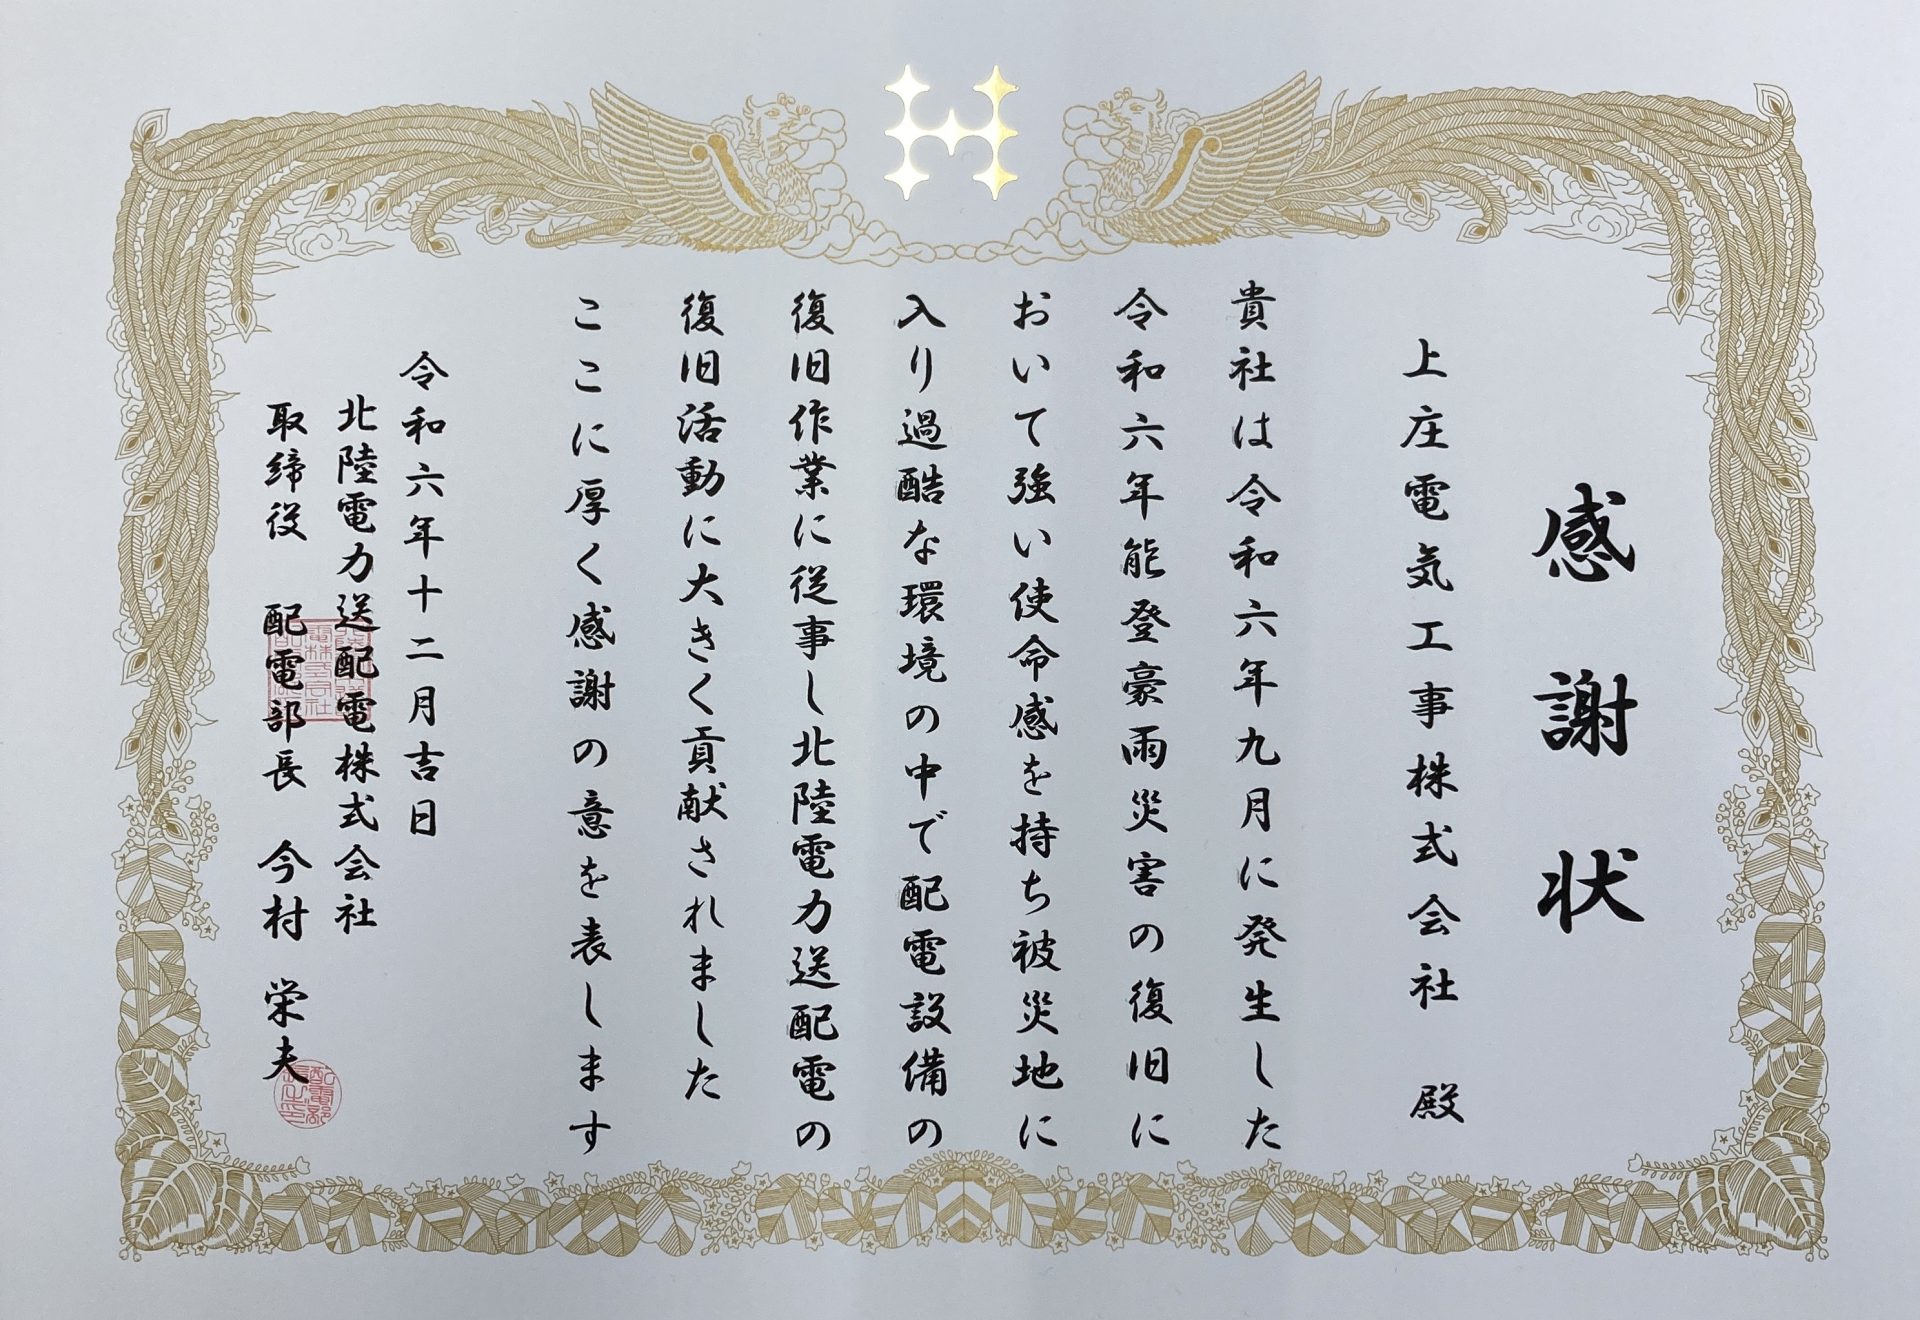 感謝状
上庄電気工事株式会社 殿
貴社は令和六年九月に発生した
令和六年能登豪雨災害の復旧に
おいて強い使命感を持ち被災地に
入り過酷な環境の中で配電設備の
復旧作業に従事し北陸電力送配電の
復旧活動に大きく貢献されました
ここに厚く感謝の意を表します
令和六年十二月吉日
北陸電力送配電株式会社
取締役 配電部長 今村 栄夫